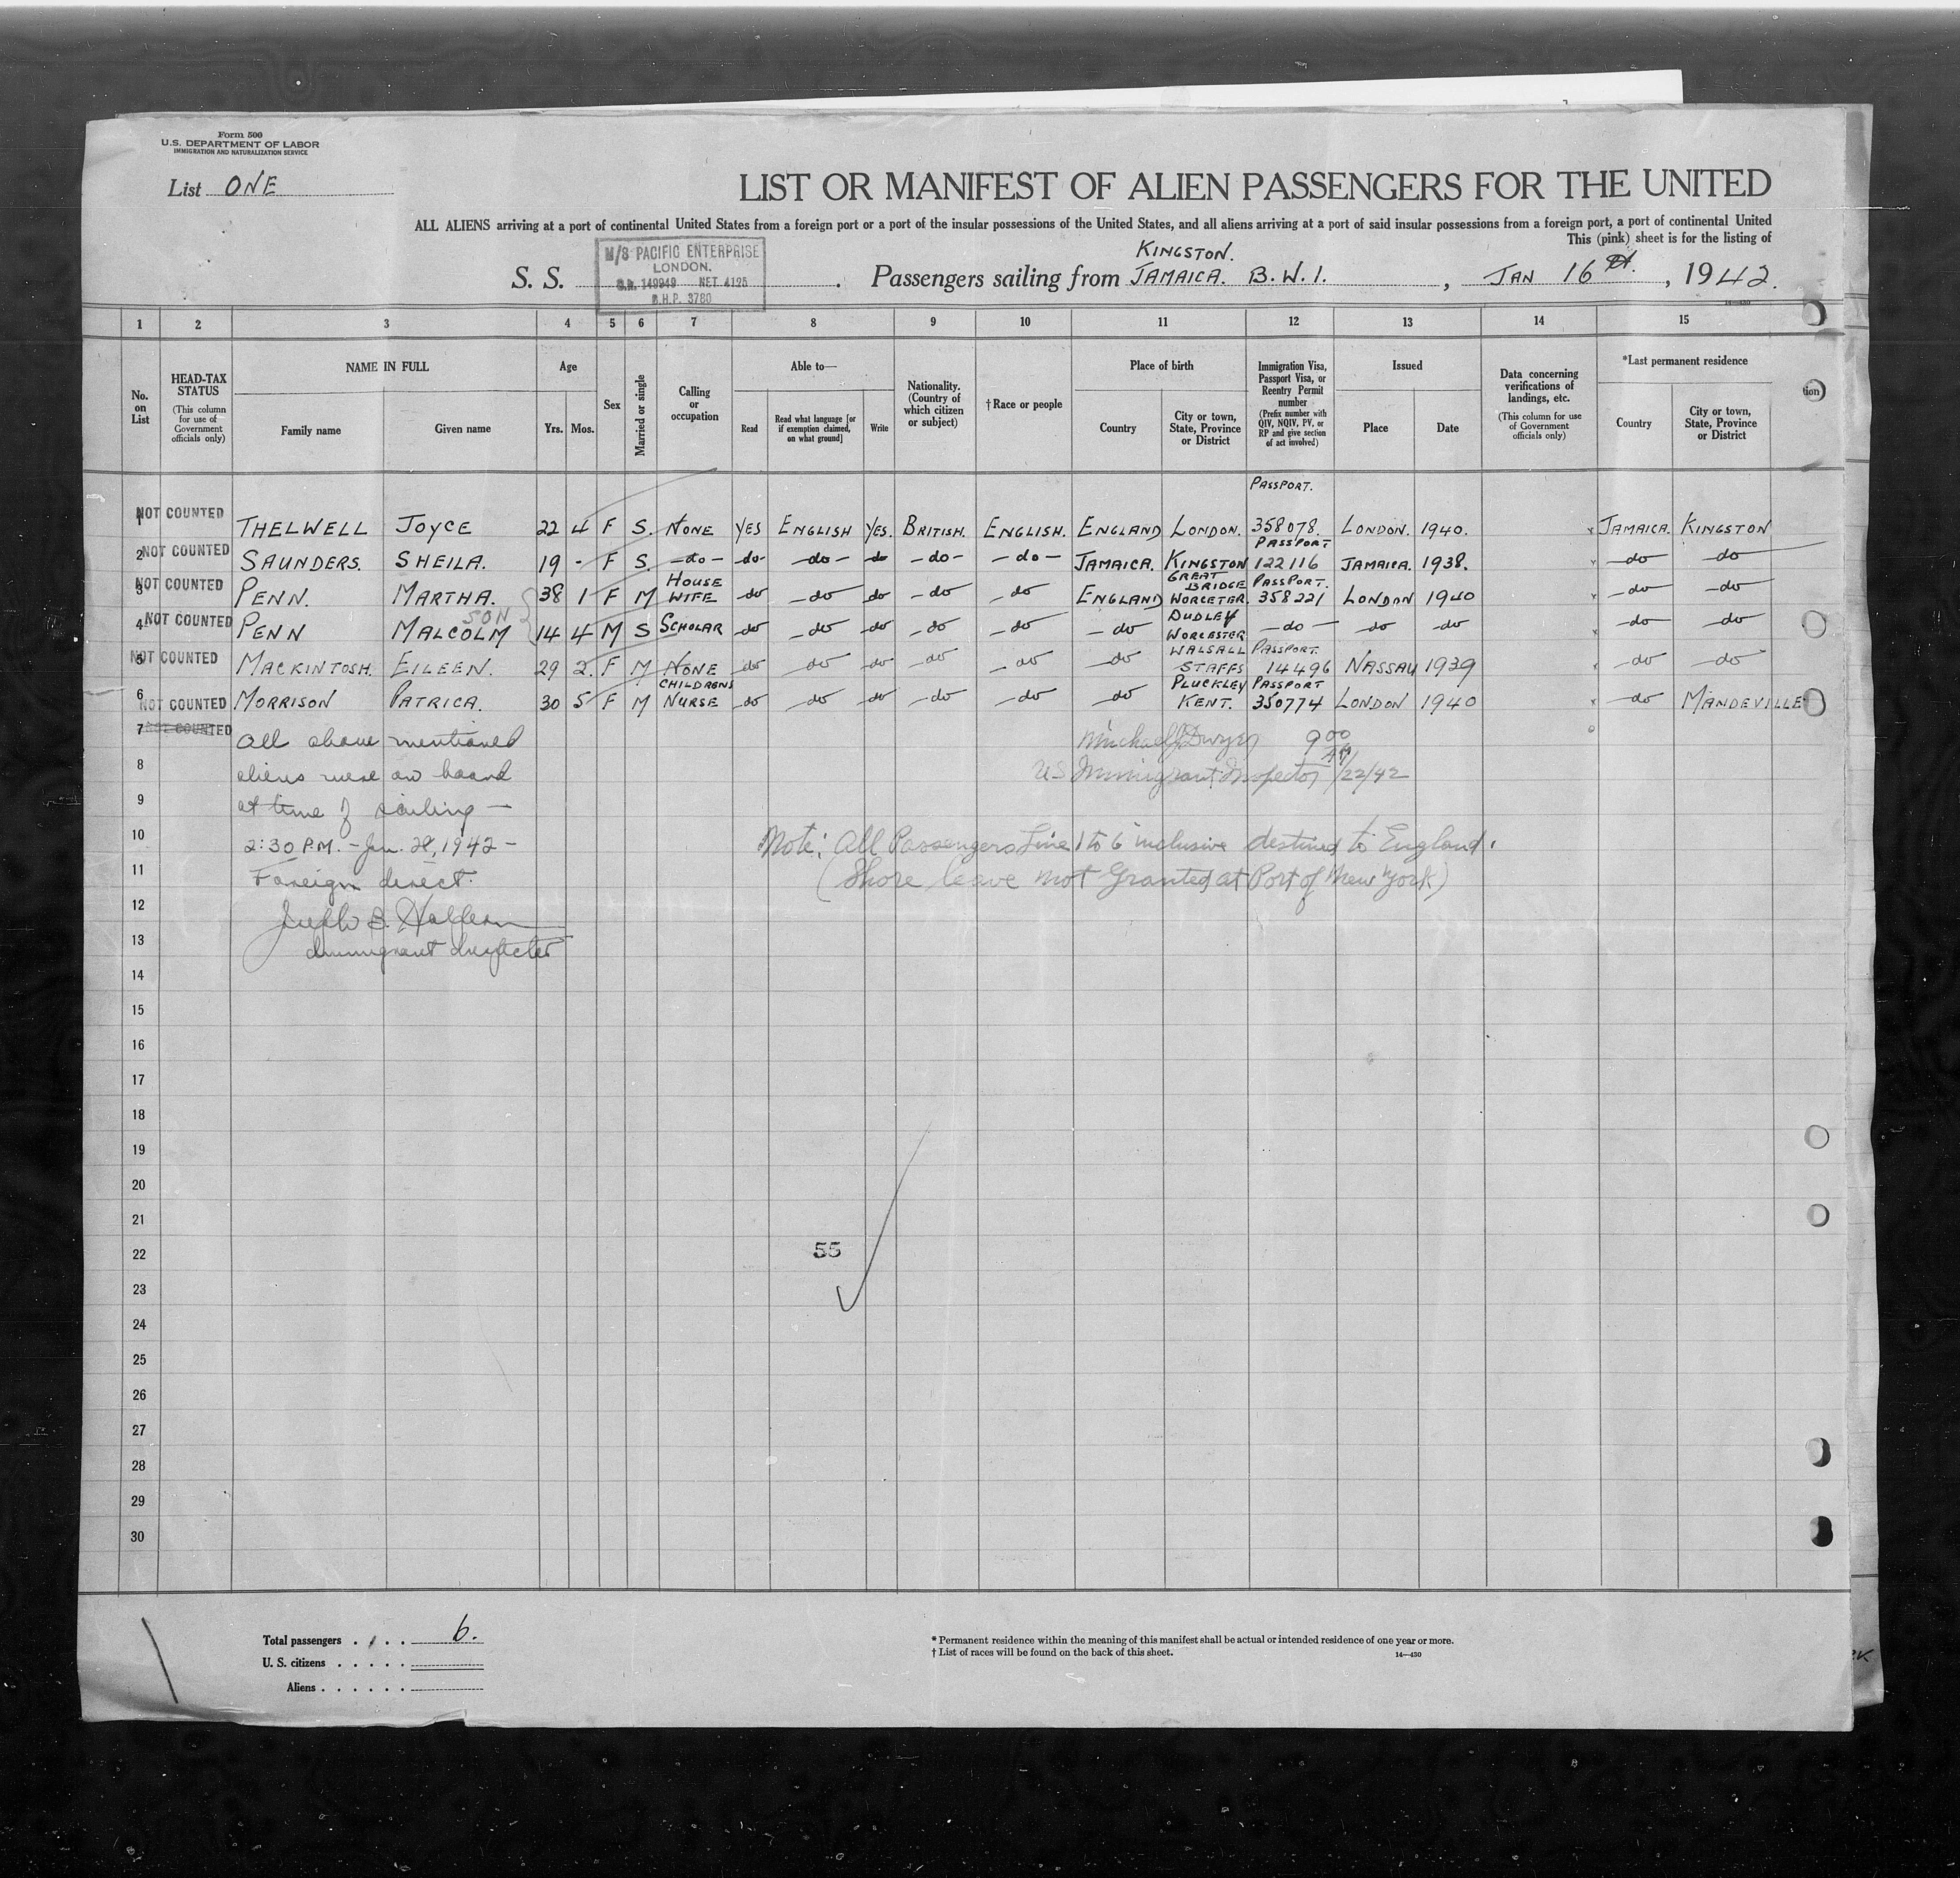 Form 500
U.S. DEPARTMENT OF LABOR
IMMIGRATION AND NATURALIZATION SERVICE
List ONE
LIST OR MANIFEST OF ALIEN PASSENGERS FOR THE UNITED
ALL ALIENS arriving at a port of continental United States from a foreign port or a port of the insular possessions of the United States, and all aliens arriving at a port of said insular possessions from a foreign port, a port of continental United
This (pink) sheet is for the listing of
S. S. M/S PACIFIC ENTERPRISE
LONDON.
O.N. 149949 NET 4125
B.H.P. 3780
Passengers sailing from KINGSTON. JAMAICA. B.W.I. , JAN 16th. , 1942.
14—430
1 2 3 4 5 6 7 8 9 10 11 12 13 14 15
No. on List
HEAD-TAX STATUS
(This column for use of Government officials only)
NAME IN FULL
Family name Given name
Age
Yrs. Mos.
Sex
Married or single
Calling or occupation
Able to—
Read
Read what language [or if exemption claimed, on what ground]
Write
Nationality. (Country of which citizen or subject)
†Race or people
Place of birth
Country
City or town, State, Province or District
Immigration Visa, Passport Visa, or Reentry Permit number
(Prefix number with QIV, NQIV, PV, or RP and give section of act involved)
Issued
Place Date
Data concerning verifications of landings, etc.
(This column for use of Government officials only)
*Last permanent residence
Country
City or town, State, Province or District
tion
1 NOT COUNTED THELWELL JOYCE 22 4 F S. NONE YES ENGLISH YES. BRITISH. ENGLISH. ENGLAND LONDON. PASSPORT. 358078. LONDON. 1940. x JAMAICA. KINGSTON
2 NOT COUNTED SAUNDERS. SHEILA. 19 - F S. —do— do —do— do —do— —do— JAMAICA. KINGSTON PASSPORT 122116 JAMAICA. 1938. x —do —do
3 NOT COUNTED PENN. MARTHA. 38 1 F M HOUSE WIFE do —do do —do —do ENGLAND GREAT BRIDGE WORCETER. PASSPORT. 358221 LONDON 1940 x —do —do
SON
4 NOT COUNTED PENN MALCOLM 14 4 M S SCHOLAR do —do do —do —do —do DUDLEY WORCESTER —do— —do —do x —do —do
5 NOT COUNTED MACKINTOSH. EILEEN. 29 2. F M NONE do —do do —do —do —do WALSALL STAFFS PASSPORT. 14496 NASSAU 1939 x —do —do
6 NOT COUNTED MORRISON PATRICA. 30 5 F M CHILDRENS NURSE do —do do —do —do —do PLUCKLEY KENT. PASSPORT 350774 LONDON 1940 x —do MANDEVILLE
7 NOT COUNTED All above mentioned
Michael J Dwyer 9 00 AM
8 aliens were on board
US Immigrant Inspector 1/22/42
9 at time of sailing —
10 2:30 P.M. - Jan. 28, 1942 -
Note: All Passengers Line 1 to 6 inclusive destined to England.
11 Foreign direct.
(Shore leave not Granted at Port of New York)
12 Joseph B. Halpern
13 Immigrant Inspector
14
15
16
17
18
19
20
21
22 55
23
24
25
26
27
28
29
30
Total passengers . . . . 6.
U. S. citizens . . . . .
Aliens . . . . . .
* Permanent residence within the meaning of this manifest shall be actual or intended residence of one year or more.
† List of races will be found on the back of this sheet.
14—430